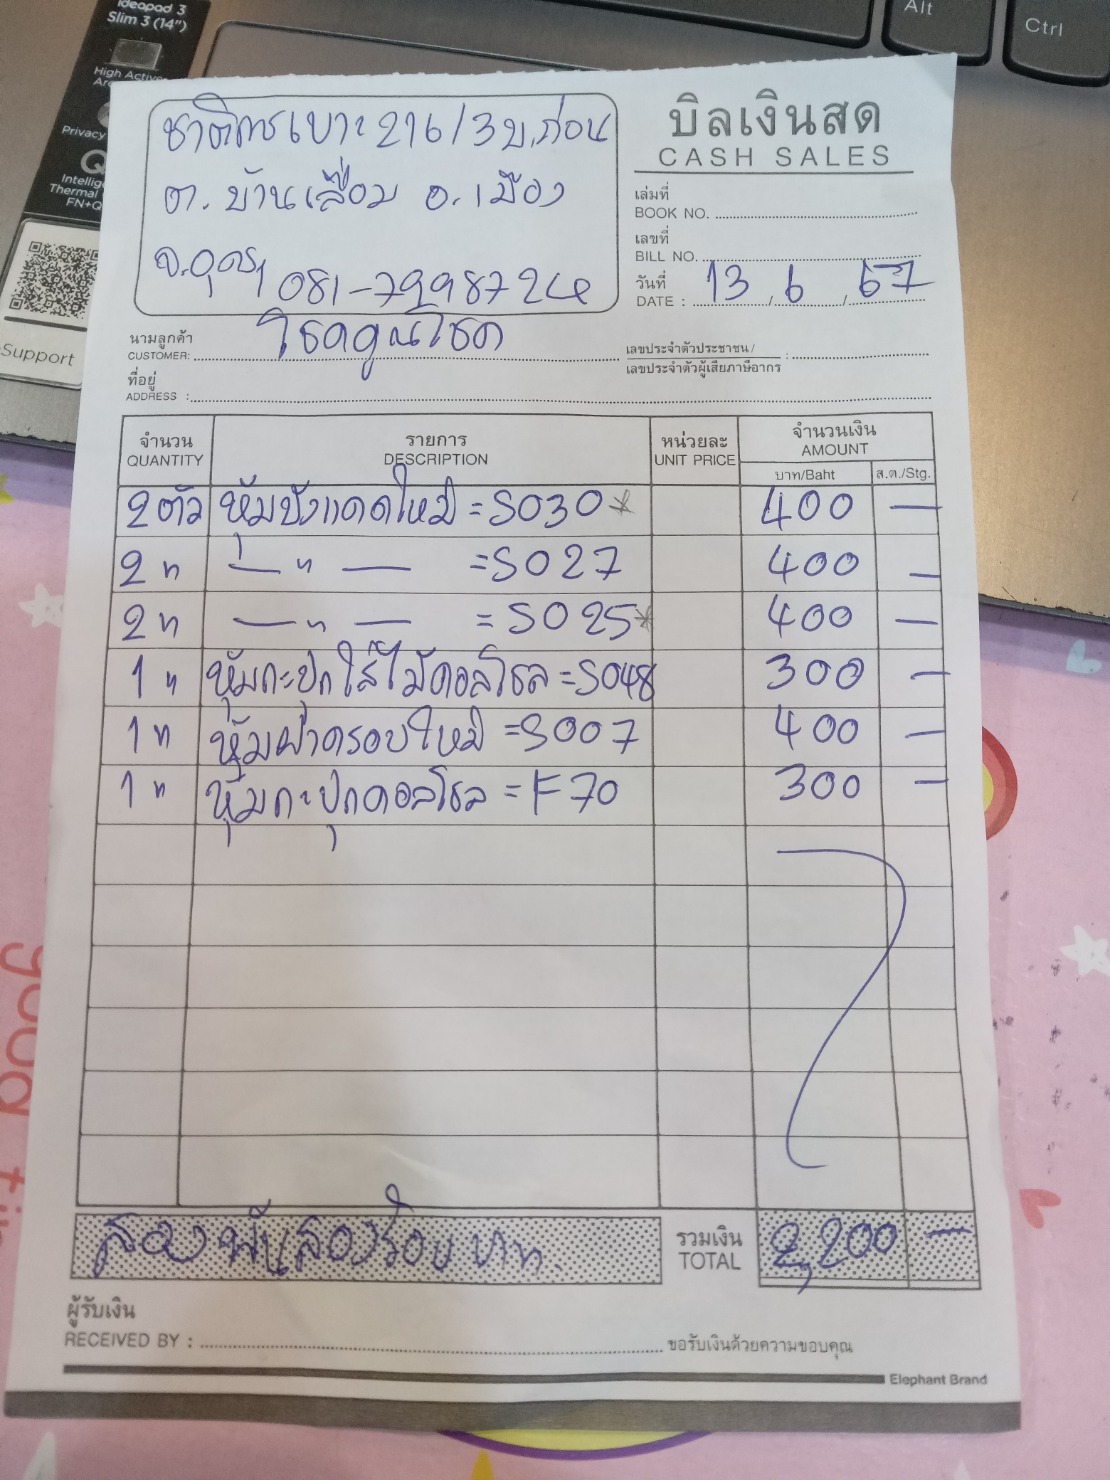 ideapad 3
Slim 3 (14")
Support
Alt
Ctrl
ชาติการเบาะ 216/3 บ.ก่อน
ต. บ้านเลื่อม อ.เมือง
จ.อุดร 081-7998724
บิลเงินสด
CASH SALES
เล่มที่
BOOK NO.
เลขที่
BILL NO.
วันที่
DATE : 13 / 6 / 67
นามลูกค้า
CUSTOMER: โชคคูณโชค
เลขประจำตัวประชาชน /
เลขประจำตัวผู้เสียภาษีอากร :
ที่อยู่
ADDRESS :
จำนวน รายการ หน่วยละ จำนวนเงิน
QUANTITY DESCRIPTION UNIT PRICE AMOUNT
บาท/Baht ส.ต./Stg.
2 ตัว หุ้มบังแดดใหม่ = S030 * 400 —
2 " — " — = S027 400 —
2 " — " — = S025 * 400 —
1 " หุ้มกะปุกใส่ไม้คอลโซล = S048 300 —
1 " หุ้มฝาครอบใหม่ = S007 400 —
1 " หุ้มกะปุกคอลโซล = F70 300 —
สองพันสองร้อยบาท.
รวมเงิน
TOTAL 2,200 —
ผู้รับเงิน
RECEIVED BY : ขอรับเงินด้วยความขอบคุณ
Elephant Brand